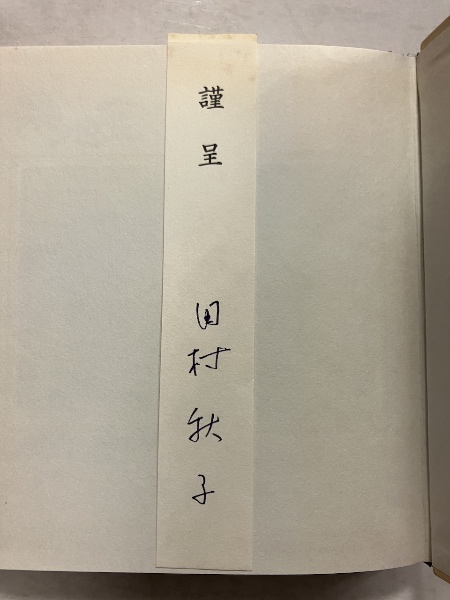 謹呈
田村秋子